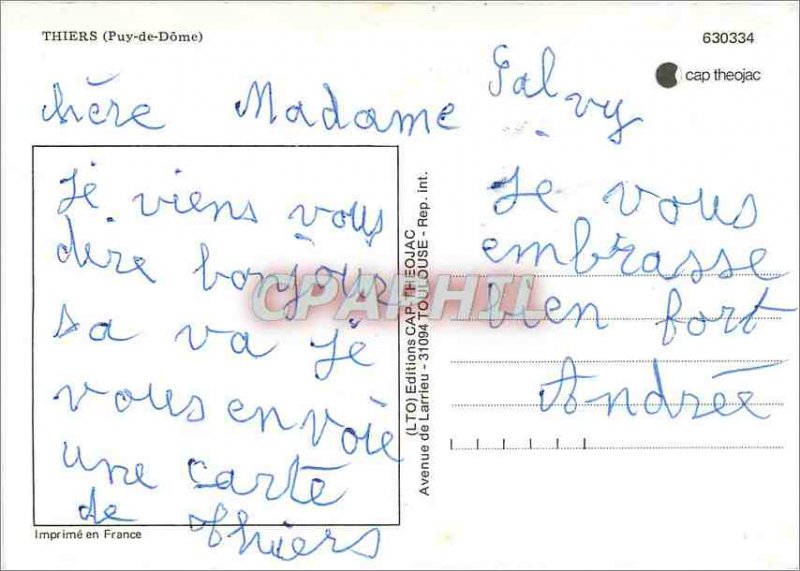 THIERS (Puy-de-Dôme)
630334
cap theojac
chère Madame Salvy
Je viens vous
dire bonjour
sa va je
vous envoie
une carte
de thiers
Je vous
embrasse
bien fort
Andrée
(LTO) Editions CAP-THEOJAC
Avenue de Larrieu - 31094 TOULOUSE - Rep. int.
Imprimé en France
CPAPHIL